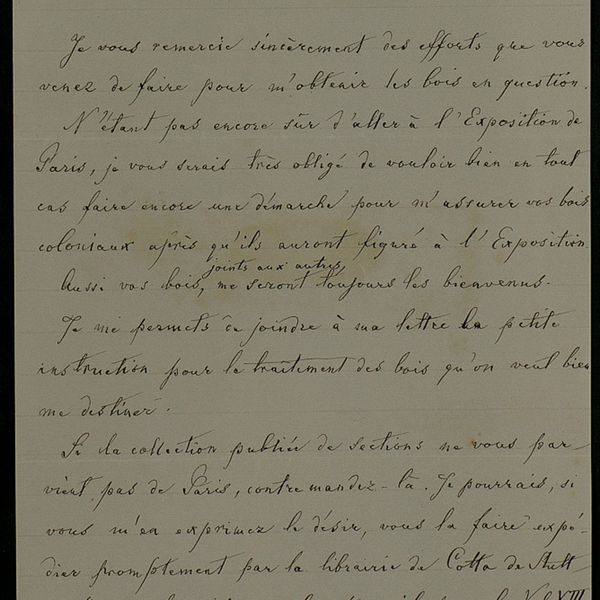 Je vous remercie sincèrement des efforts que vous
venez de faire pour m'obtenir les bois en question.
N'étant pas encore sûr d'aller à l'Exposition de
Paris, je vous serais très obligé de vouloir bien en tout
cas faire encore une démarche pour m'assurer vos bois
coloniaux après qu'ils auront figuré à l'Exposition
joints aux autres
Aussi vos bois, me seront toujours les bienvenus.
Je me permets de joindre à ma lettre la petite
instruction pour le traitement des bois qu'on veut bien
me destiner.
Si la collection publiée de sections ne vous par-
vient pas de Paris, contremandez-la. Je pourrais, si
vous m'en exprimez le désir, vous la faire expé-
dier promptement par la librairie de Cotta de Stutt-